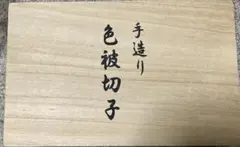 手造り
色被切子